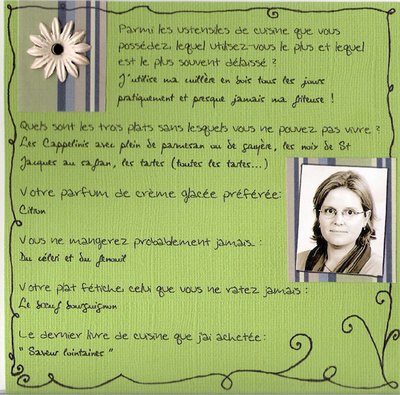 Parmi les ustensiles de cuisine que vous
possédez, lequel utilisez-vous le plus et lequel
est le plus souvent délaissé ?
J'utilise ma cuillère en bois tous les jours
pratiquement et presque jamais ma friteuse !
Quels sont les trois plats sans lesquels vous ne pouvez pas vivre ?
Les Cappelinis avec plein de parmesan ou de gruyère, les noix de St
Jacques au safran, les tartes (toutes les tartes...)
Votre parfum de crème glacée préférée:
Citron
Vous ne mangerez probablement jamais :
Du céleri et du fenouil
Votre plat fétiche, celui que vous ne ratez jamais :
Le bœuf bourguignon
Le dernier livre de cuisine que j'ai achetée :
" Saveur lointaines "